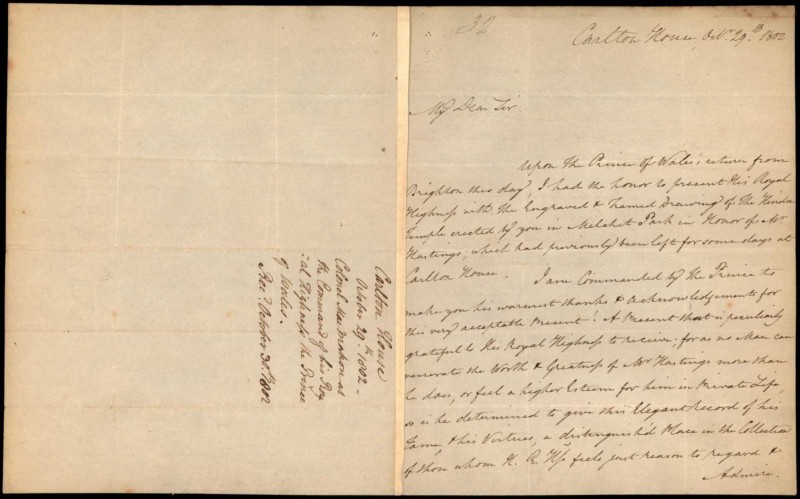 Carlton House
October 29.th 1802.
Colonel MacMahon as
the Command of his Roy
:al Highness the Prince
of Wales.
Rec.d October 30.th 1802
32
Carlton House, Oct.r 29.th 1802
My Dear Sir.
Upon The Prince of Wales's return from
Brighton this day, I had the honor to present His Royal
Highness with the Engraved & Framed Drawing of The Hindu
Temple erected by you in Melchet Park in Honor of Mr
Hastings; which had previously been left for some days at
Carlton House. I am Commanded by The Prince to
make you his warmest thanks & acknowledgements for
this very acceptable Present! A Present that is peculiarly
grateful to His Royal Highness to receive; for as no Man can
venerate the Worth & Greatness of Mr Hastings more than
he does, or feel a higher Esteem for him in Private Life,
so is he determined to give this Elegant Record of his
Fame, & his Virtues, a distinguish'd Place in the Collection
of those whom H. R. Hss feels just reason to regard &
Admire.